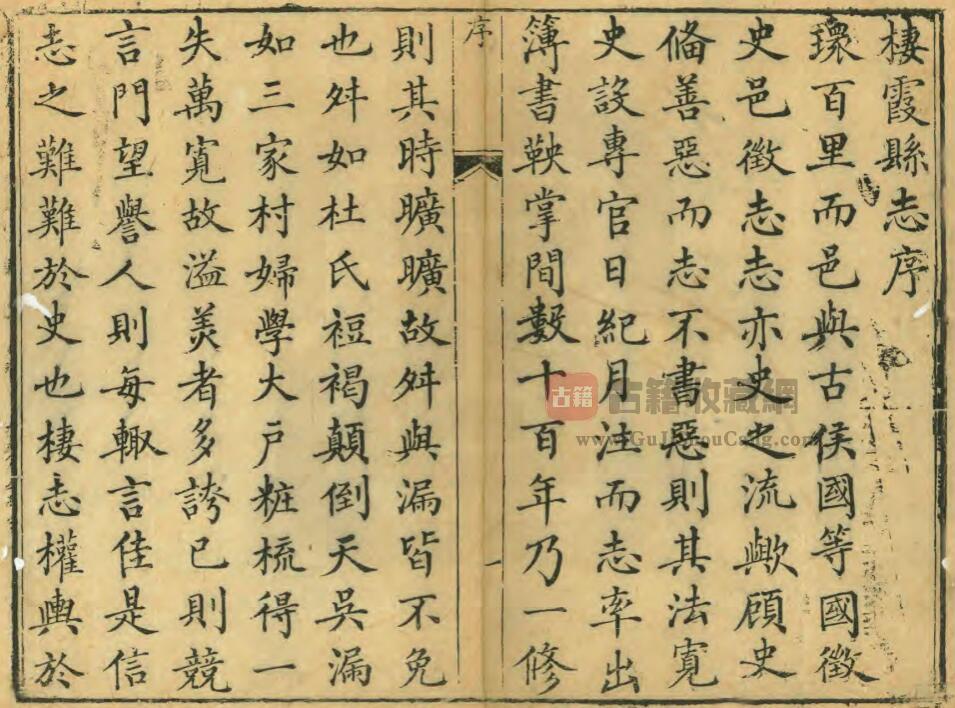 棲霞縣志序
環百里而邑與古侯國等國徵
史邑徵志志亦史之流歟顧史
俻善惡而志不書惡則其法寬
史設專官日紀月注而志率出
簿書鞅掌間數十百年乃一修
序
一
則其時曠曠故舛與漏皆不免
也舛如杜氏裋褐顛倒天吳漏
如三家村婦學大戶粧梳得一
失萬寬故溢美者多誇已則競
言門望譽人則每輙言佳是信
志之難難於史也棲志權輿於
古籍
古籍收藏網
www.GuJiShouCang.com